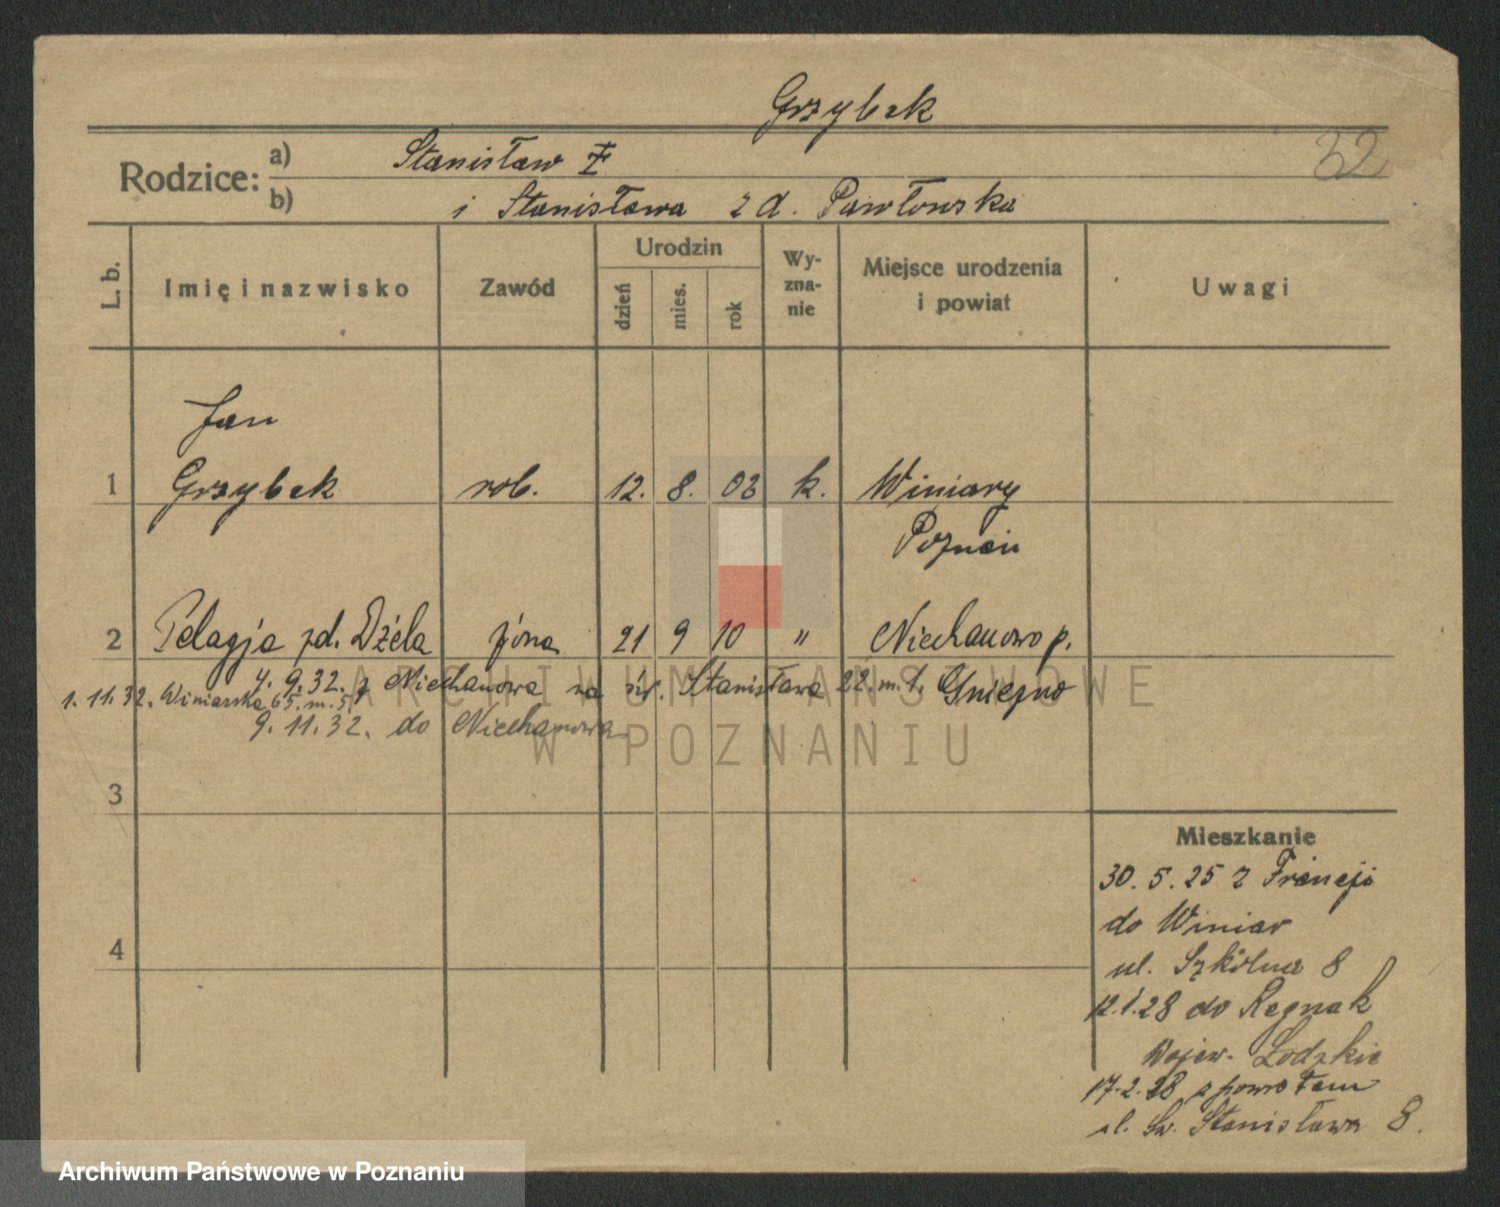 Grzybek
32
Rodzice: a) Stanisław
b) i Stanisława z d. Pawłowska
L. b.
Imię i nazwisko
Zawód
Urodzin
dzień
mies.
rok
Wy-
zna-
nie
Miejsce urodzenia
i powiat
Uwagi
Jan
1 Grzybek rob. 12. 8. 02 k. Winiary
Poznań
2 Pelagja zd. Dziela żona 21 9 10 " Niechanowo p.
4. 9. 32. z Niechanowa na św. Stanisława 22. m. 1. Gniezno
1. 11. 32. Winiarska 65. m. 5.
9. 11. 32. do Niechanowa
3
4
Mieszkanie
30. 5. 25 z Francji
do Winiar
ul. Szkólna 8
12. 1. 28 do
Wojew. Łodzkie
17. 2. 28 z powrotem
ul. Św. Stanisława 8.
ARCHIWUM PAŃSTWOWE
W POZNANIU
Archiwum Państwowe w Poznaniu